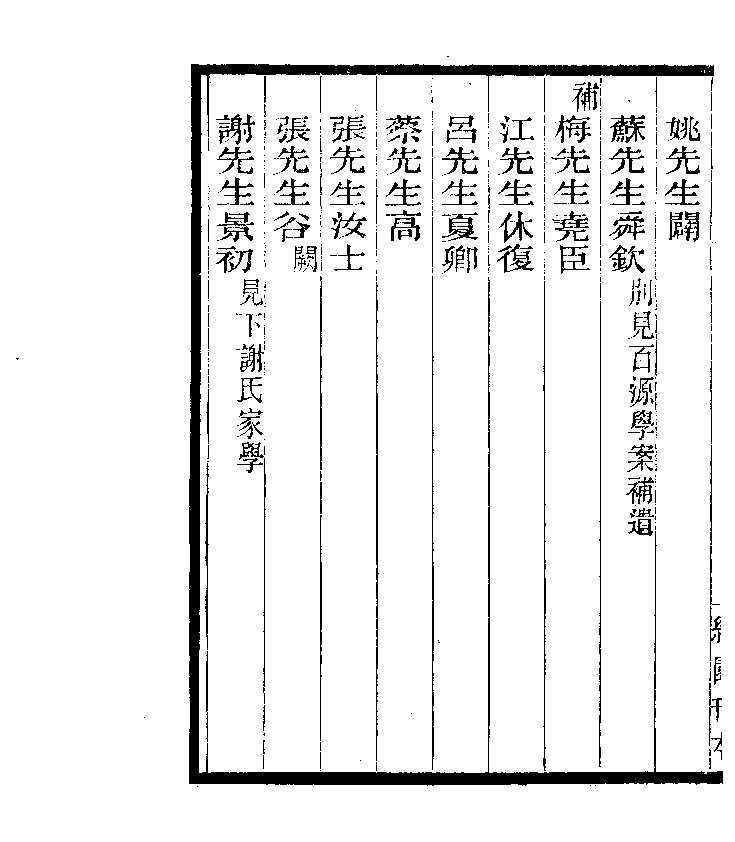 約園刊本
姚先生闢
蘇先生舜欽別見百源學案補遺
補梅先生堯臣
江先生休復
呂先生夏卿
蔡先生高
張先生汝士
張先生谷闕
謝先生景初見下謝氏家學